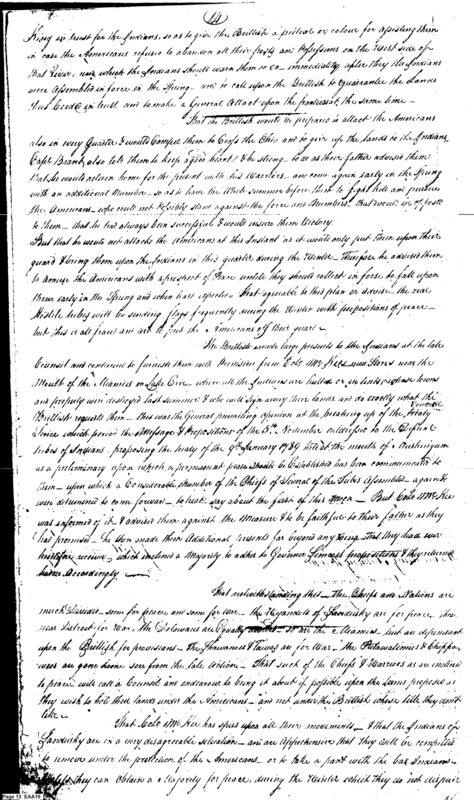 (14)
King in trust for the Indians, so as to give the British a pretext or colour for assisting them
in case the Americans refuse to abandon all their posts and possessions on the West side of
that River, which the Indians should warn them so immediately after they the Indians
were Assembled in force in the Spring and to call upon the British to guarantee the Lands
thus Ceded in trust and to make a General Attack upon the at the same time
That the British would be prepared to attack the Americans
also in every Quarter & would Compel them to Cross the Ohio and to give up the lands to the Indians
Capt. Brant also told them to keep a good heart & be strong to do as their father advised them
that he would return home for the present with his Warriors and come again early in the Spring
with an additional Number so as to have the Whole summer before them to fight kill and pursue
the Americans who could not possibly stand against the force and Numbers that would be opposed
to them that he had always been successful & would insure them Victory
But that he would not attack the Americans at this Instant as it would only put them upon their
guard & bring them upon the Indians in this quarter during the Winter therefore he advised them
to amuse the Americans with a prospect of Peace untill they should collect in force to fall upon
them early in the Spring and when least expected that agreeable to this plan or advice the real
Hostile tribes will be sending flags frequently during the Winter with propositions of peace
but this is all fraud and art to put the Americans off their guard
The British made large presents to the Indians at the late
Council and continued to furnish them with Provision from Colo. McKees new Stores near the
Mouth of the Miamies on Lake Erie where all the Indians are hutted or in tents whose towns
and property were destroyed last summer & who will sign away their lands and do exactly what the
British request them this was the General prevailing opinion at the breaking up of the Treaty
Since which period the Message & Propositions of the 5th November addressed to the Different
tribes of Indians proposing the treaty of the 9th January 1789 held at the mouth of Muskingum
as a preliminary upon which a permanent peace should be Established has been communicated to
them upon which a Considerable Number of the Chiefs of Several of the Tribes Assembled again &
were determined to come forward But Colo. McKee
was informed of it & advised them against the Measure & to be faithful to their Father as they
had promised he then made them Additional Presents far beyond any thing that they had ever
heretofore receiv'd which inclined a Majority to adhere to Governor Simcoes propositions & they returned
home accordingly
That notwithstanding this the Chiefs and Nations are
much Divided some for peace and some for war the Wyandots of Sandusky are for peace those
near Detroit for War, the Delawares are Equally so are the Miamies but are dependant
upon the British for provisions the Shawanes & Tawas are for War the Putawatimes & Chippa
ways are gone home sore from the late Action that such of the Chiefs & Warriors as are inclined
to peace will call a Council and endeavour to bring it about if possible upon the terms proposed as
they wish to hold their lands under the Americans and not under the British whose title they don't
like
That Colo. McKee has spies upon all their movements & that the Indians of
Sandusky are in a very disagreeable situation and are Apprehensive that they will be compelled
to remove under the protection of the Americans or to take a part with the bad Indians
they can obtain a Majority for peace, during the Winter which they do not despair
Page 13 EAA19